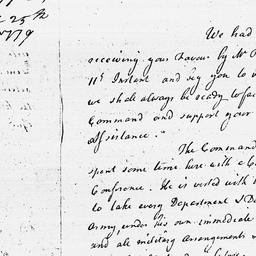 25th
1779
We had
receiving your favour by Mr
11th Instant and beg you to
we shall always be ready to
Command and support your
assistance."
The Command
spent some time here with a
Conference. He is vested with
to take every Department
Army, under his own immediate
and all military arrangements